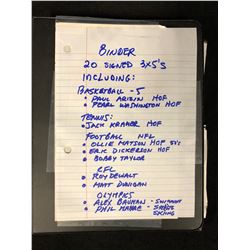 BINDER
20 SIGNED 3X5'S
INCLUDING:
BASKETBALL - 5
• PAUL ARIZIN HOF
• PEARL WASHINGTON HOF
TENNIS:
• JACK KRAMER HOF
FOOTBALL NFL
• OLLIE MATSON HOF
• ERIC DICKERSON HOF
• BOBBY TAYLOR
CFL
• ROY DEWALT
• MATT DUNIGAN
OLYMPICS
• ALEX BAUMAN - SWIMMING
• PHIL MAHRE - 
SKIING